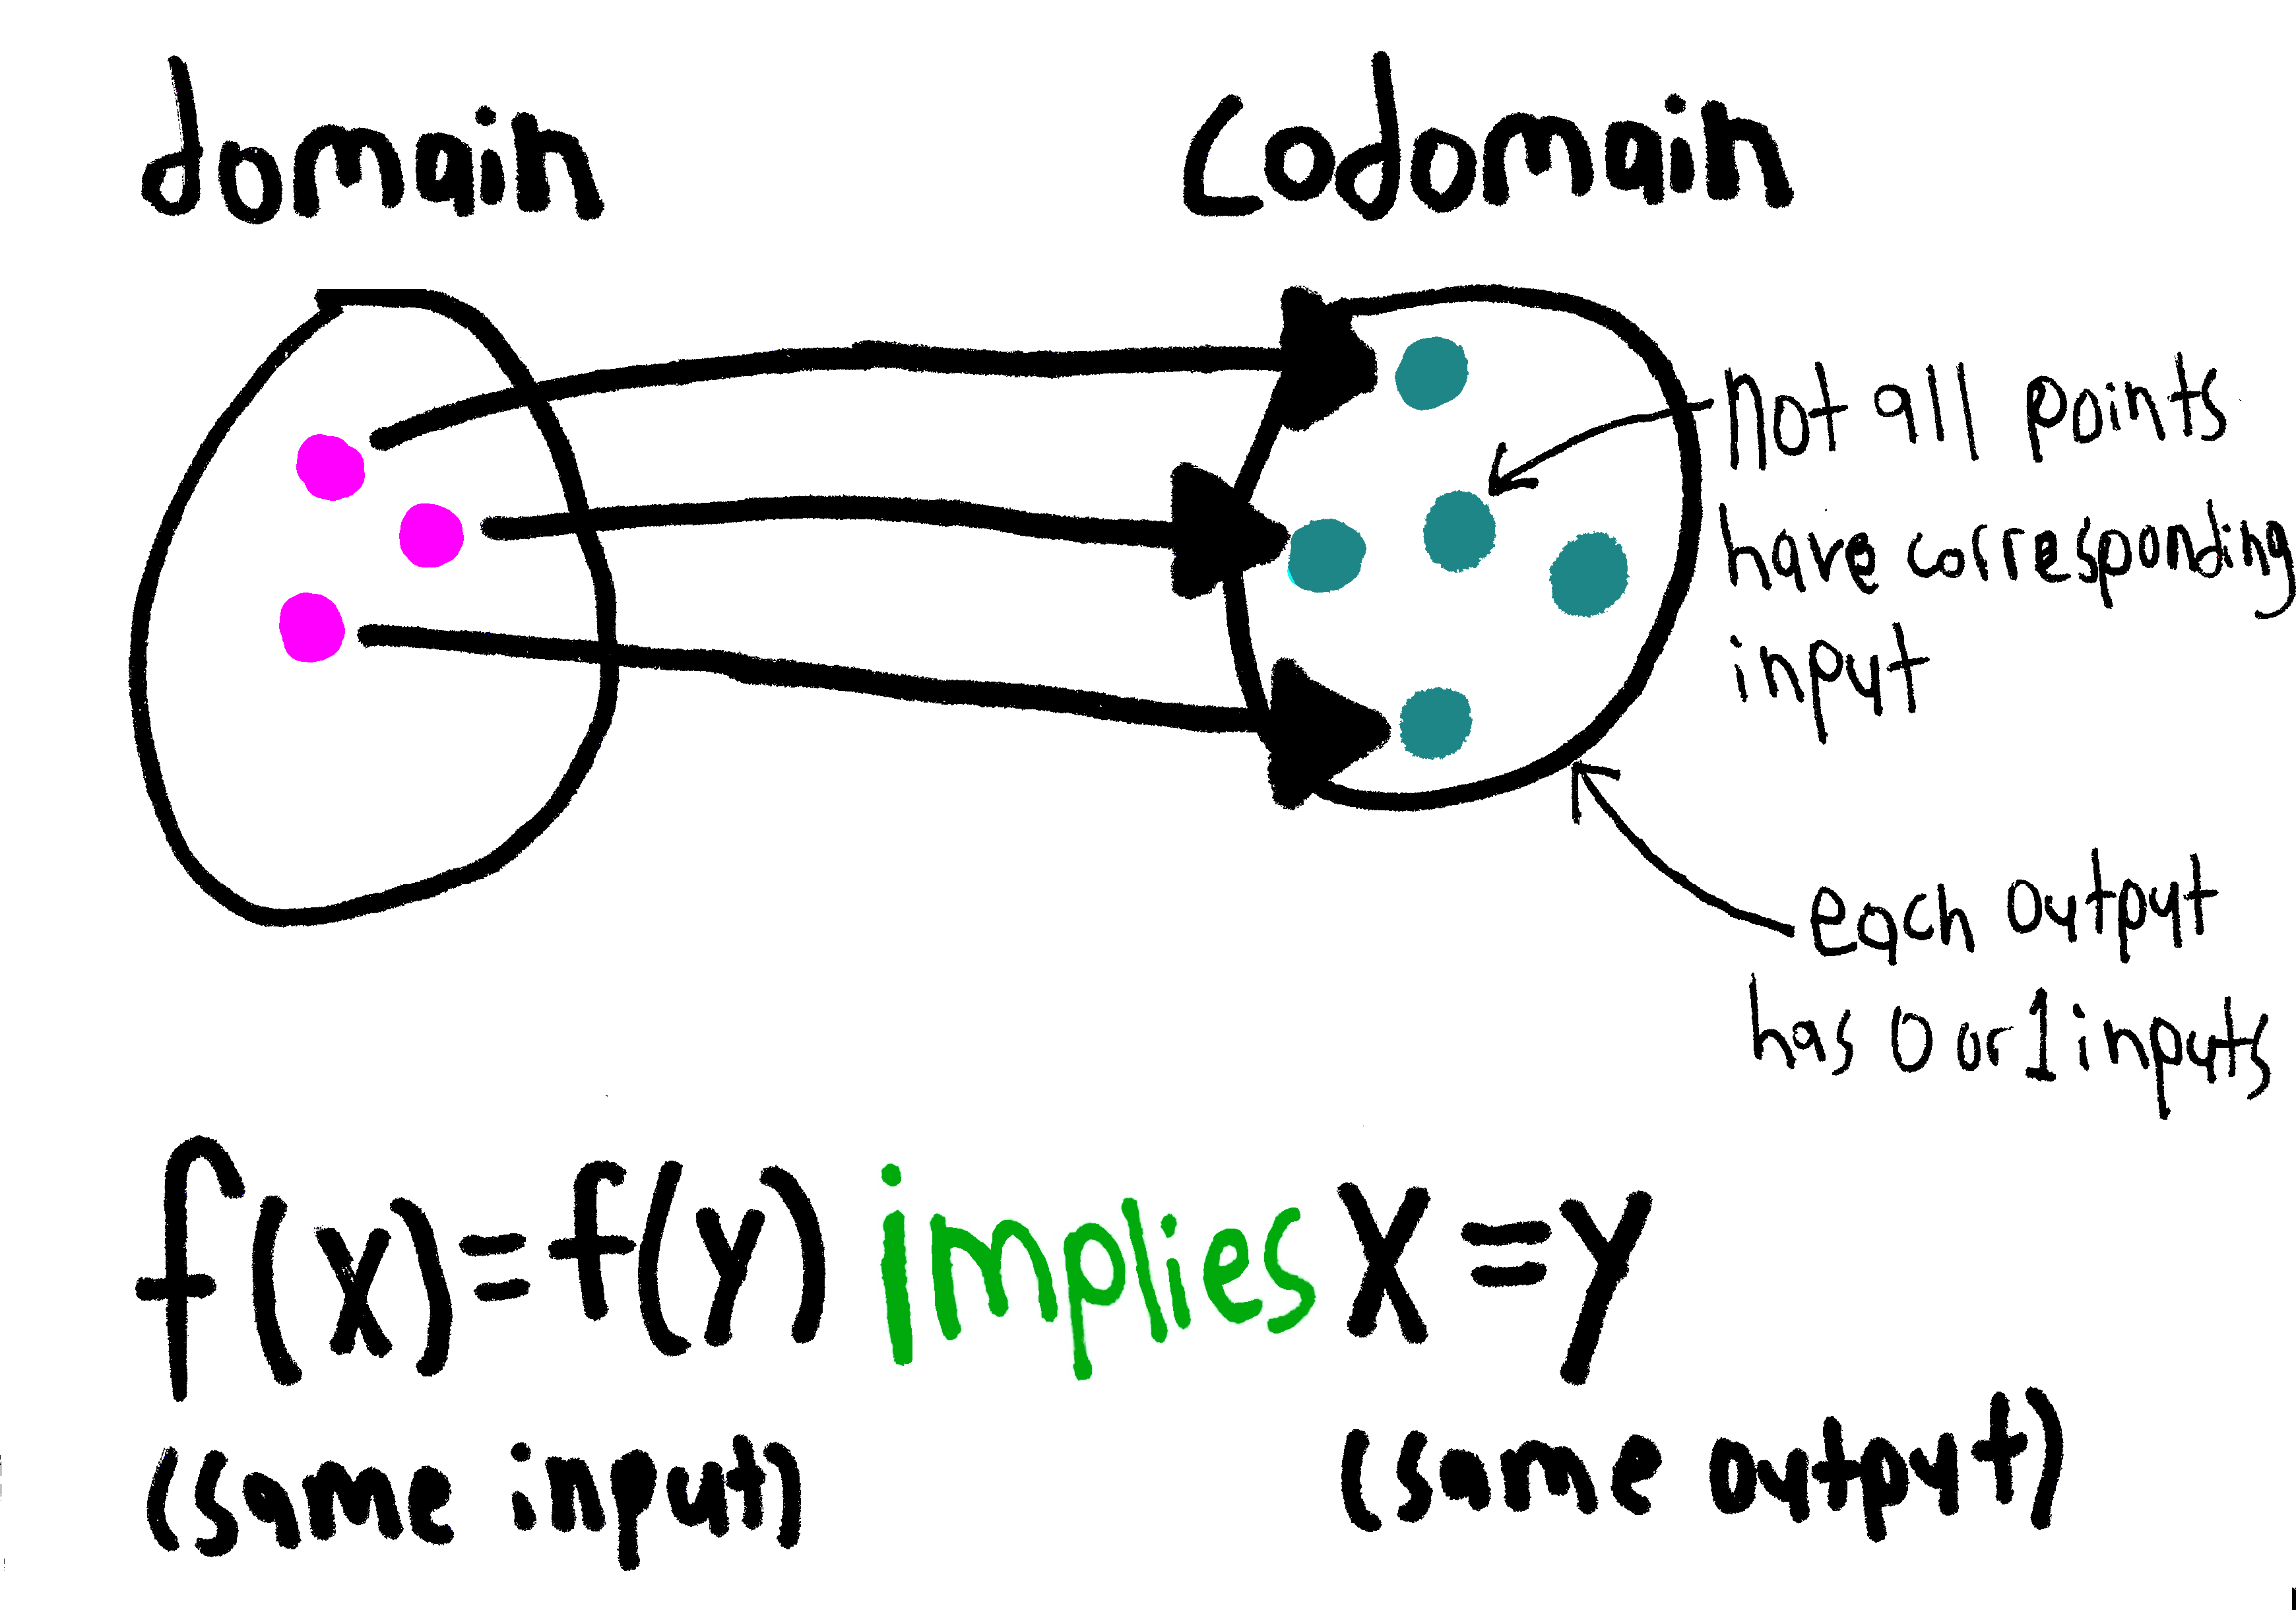 domain
Codomain
not all points
have corresponding
input
each output
has 0 or 1 inputs
f(x)=f(y) implies x=y
(same input)
(same output)